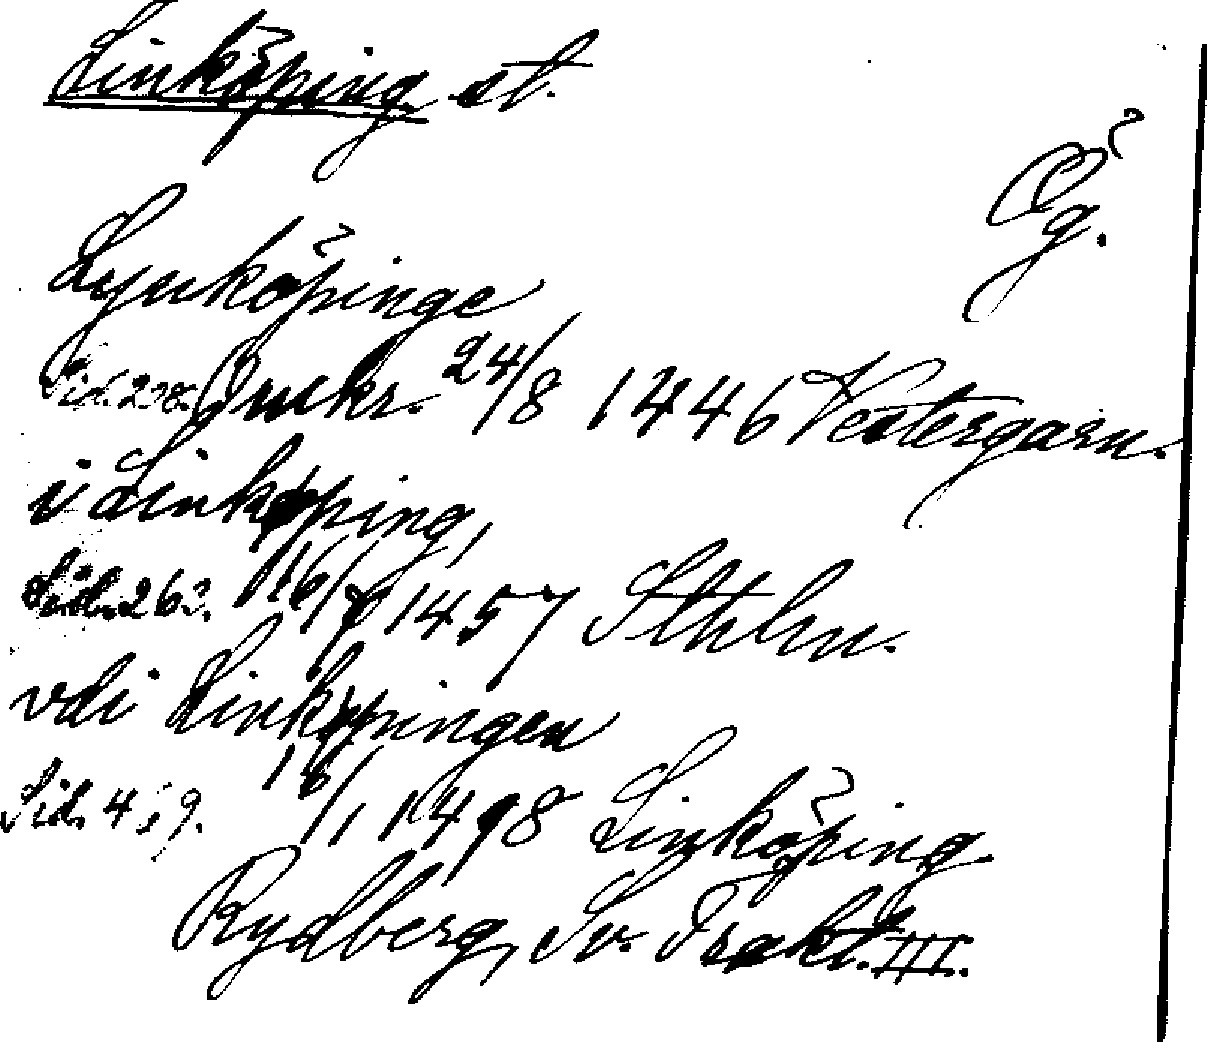 Linköping st.
Ög.
Lynköpinge
Sid. 238. Omkr. 24/8 1446 Vestergarn.
i Linkøping,
Sid. 263. 16/7 1457 Sthlm.
vdi Linkøpingen
Sid. 4 9. 16/1 1498 Linköping
Rydberg, Sv. Trakt. III.